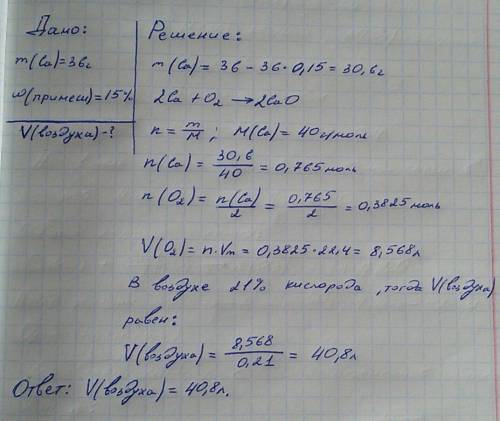 Дано:
m(Ca)=36г
ω(примеш)=15%
V(воздуха)-?
Решение:
m(Ca) = 36 - 36·0,15 = 30,6г
2Ca + O₂ → 2CaO
n = m/M ; M(Ca) = 40 г/моль
n(Ca) = 30,6/40 = 0,765 моль
n(O₂) = n(Ca)/2 = 0,765/2 = 0,3825 моль
V(O₂) = n·Vm = 0,3825·22,4 = 8,568л
В воздухе 21% кислорода, тогда V(воздуха)
равен:
V(воздуха) = 8,568/0,21 = 40,8л
Ответ: V(воздуха) = 40,8л.